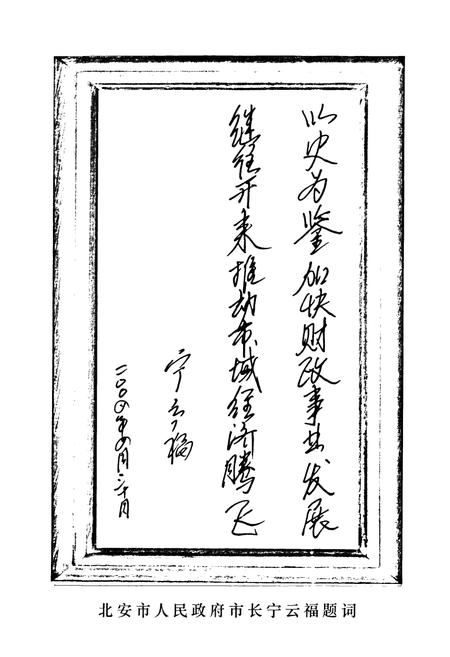 以史为鉴加快财政事业发展
继往开来推动市域经济腾飞
宁云福
二〇〇 年 月 十日
北安市人民政府市长宁云福题词